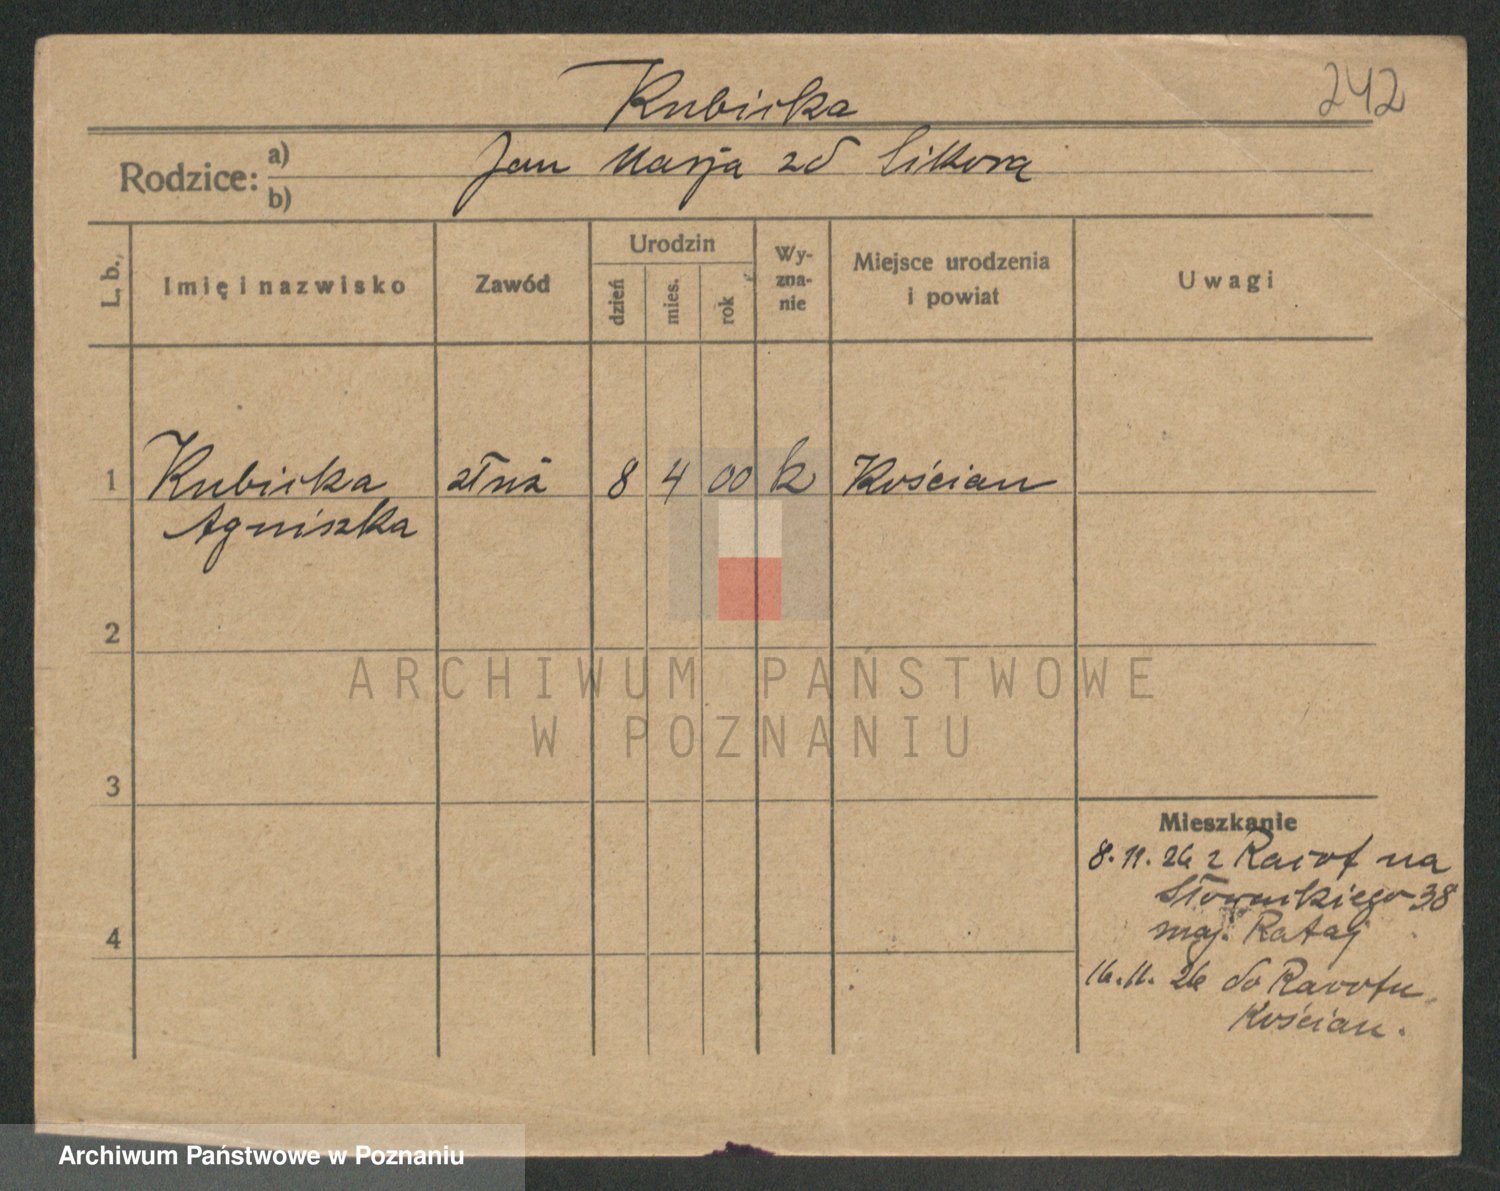 Kubicka
242
Rodzice: a)
b)
Jan Marja zd Sikora
L. b.
Imię i nazwisko
Zawód
Urodzin
dzień
mies.
rok
Wy-
zna-
nie
Miejsce urodzenia
i powiat
Uwagi
1 Kubicka 8 4 00 k Kościan
Agniszka
2
3
4
Mieszkanie
8.11.26 z Racot na
Słowackiego 38
maj. Rataj
16.11.26 do Racotu
Kościan.
ARCHIWUM PAŃSTWOWE
W POZNANIU
Archiwum Państwowe w Poznaniu